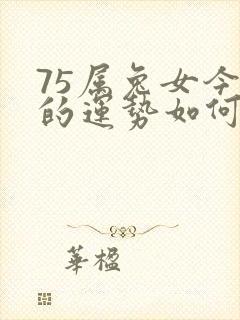 75属兔女今
的运势如何
華楹